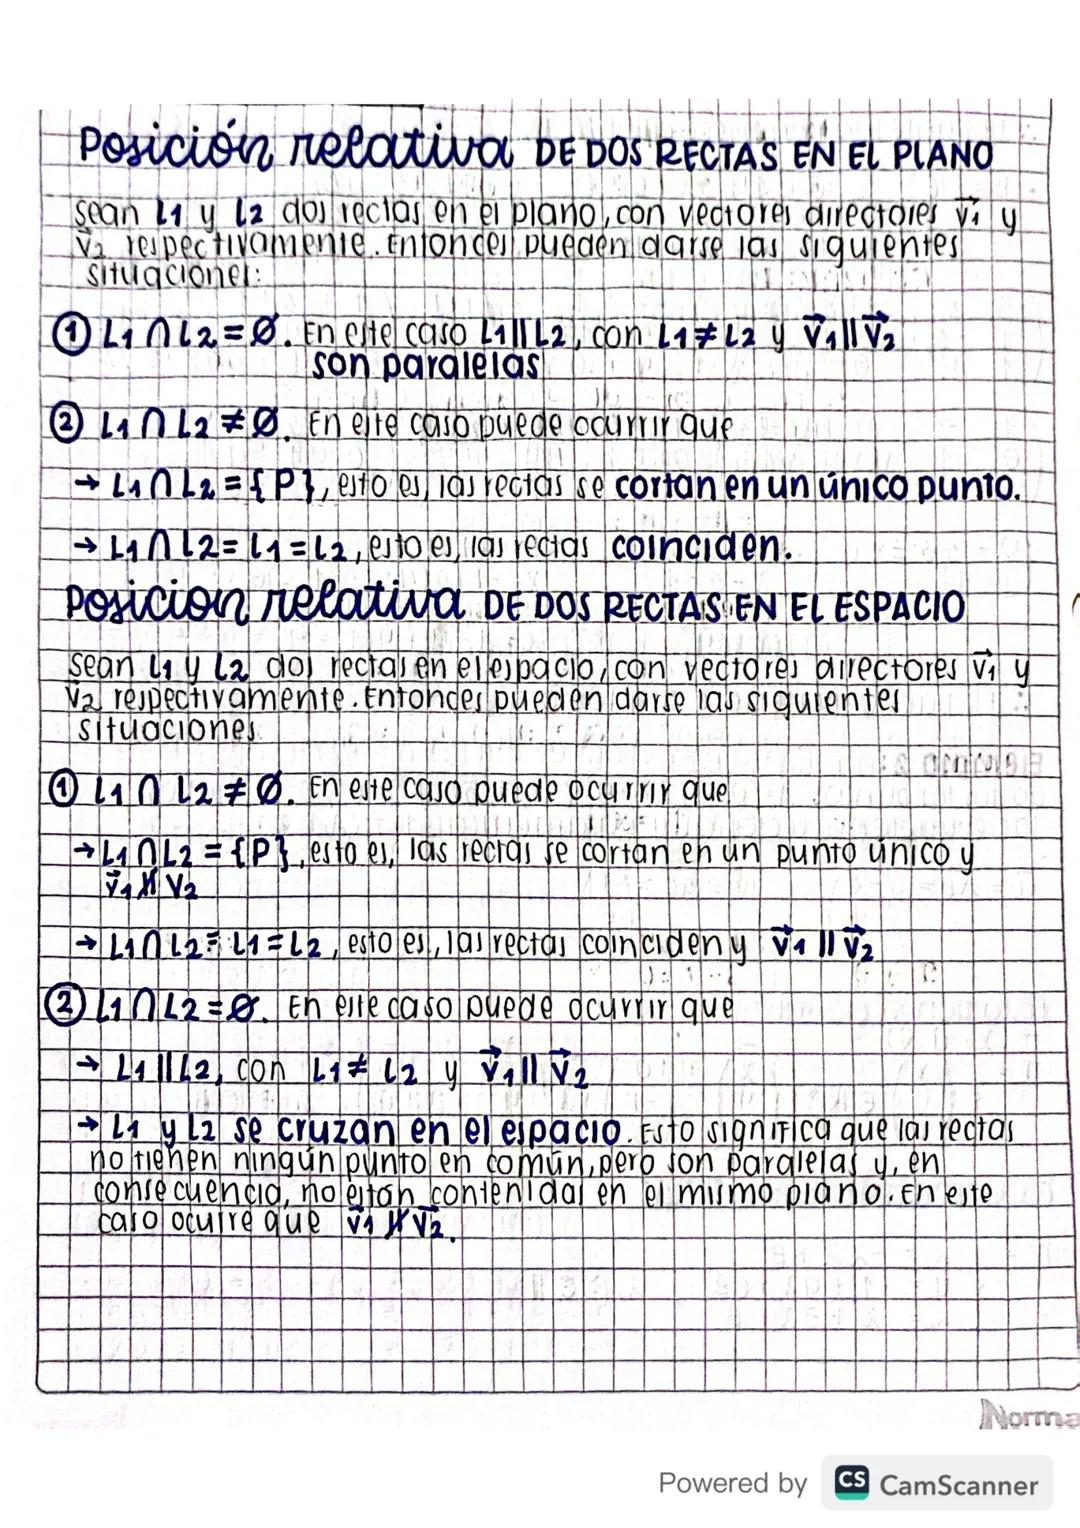 Posición relativa DE DOS RECTAS EN EL PLANO
Sean L1 y L2 dos rectas en el plano, con vectores directores v⃗1 y
v⃗2 respectivamente. Entonces pueden darse las siguientes
situaciones:
① L1 ∩ L2 = Ø. En este caso L1 || L2, con L1 ≠ L2 y v⃗1 || v⃗2
son paralelas
② L1 ∩ L2 ≠ Ø. En este caso puede ocurrir que
→ L1 ∩ L2 = {P}, esto es, las rectas se cortan en un único punto.
→ L1 ∩ L2 = L1 = L2, esto es, las rectas coinciden.
Posicion relativa DE DOS RECTAS EN EL ESPACIO
Sean L1 y L2 dos rectas en el espacio, con vectores directores v⃗1 y
v⃗2 respectivamente. Entonces pueden darse las siguientes
situaciones
① L1 ∩ L2 ≠ Ø. En este caso puede ocurrir que
→ L1 ∩ L2 = {P}, esto es, las rectas se cortan en un punto único y
v⃗1 ∦ v2
→ L1 ∩ L2 = L1 = L2, esto es, las rectas coinciden y v⃗1 || v⃗2
② L1 ∩ L2 = Ø. En este caso puede ocurrir que
→ L1 || L2, con L1 ≠ L2 y v⃗1 || v⃗2
→ L1 y L2 se cruzan en el espacio. Esto significa que las rectas
no tienen ningún punto en común, pero son paralelas y, en
consecuencia, no están contenidas en el mismo plano. En este
caso ocurre que v⃗1 ∦ v⃗2.
Norma
Powered by CS CamScanner